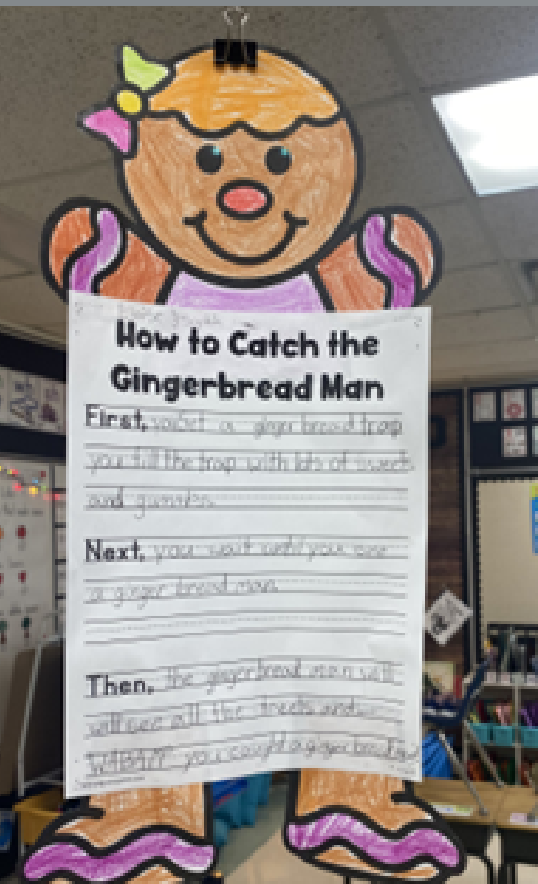 How to Catch the
Gingerbread Man
First, you set a ginger bread trap
you fill the trap with lots of sweets
and gummies.
Next, you wait until you see
a ginger bread man.
Then, the gingerbread man will
will see all the treets and
you caught a ginger bread